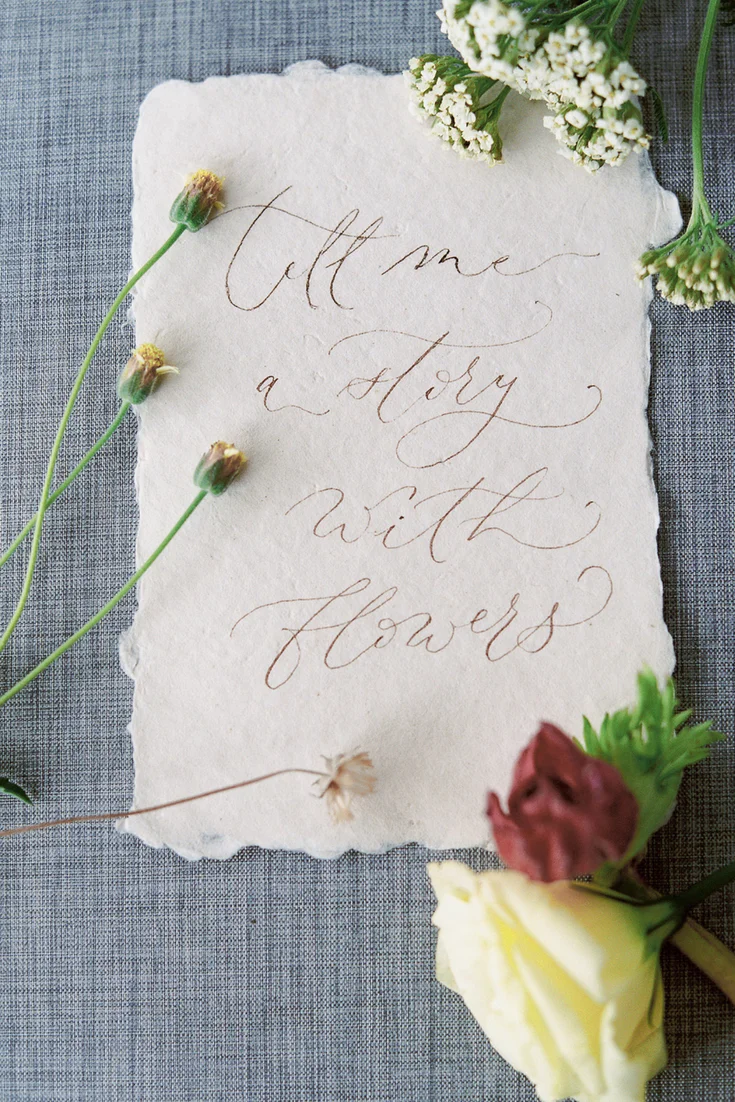 tell me
a story
with
flowers